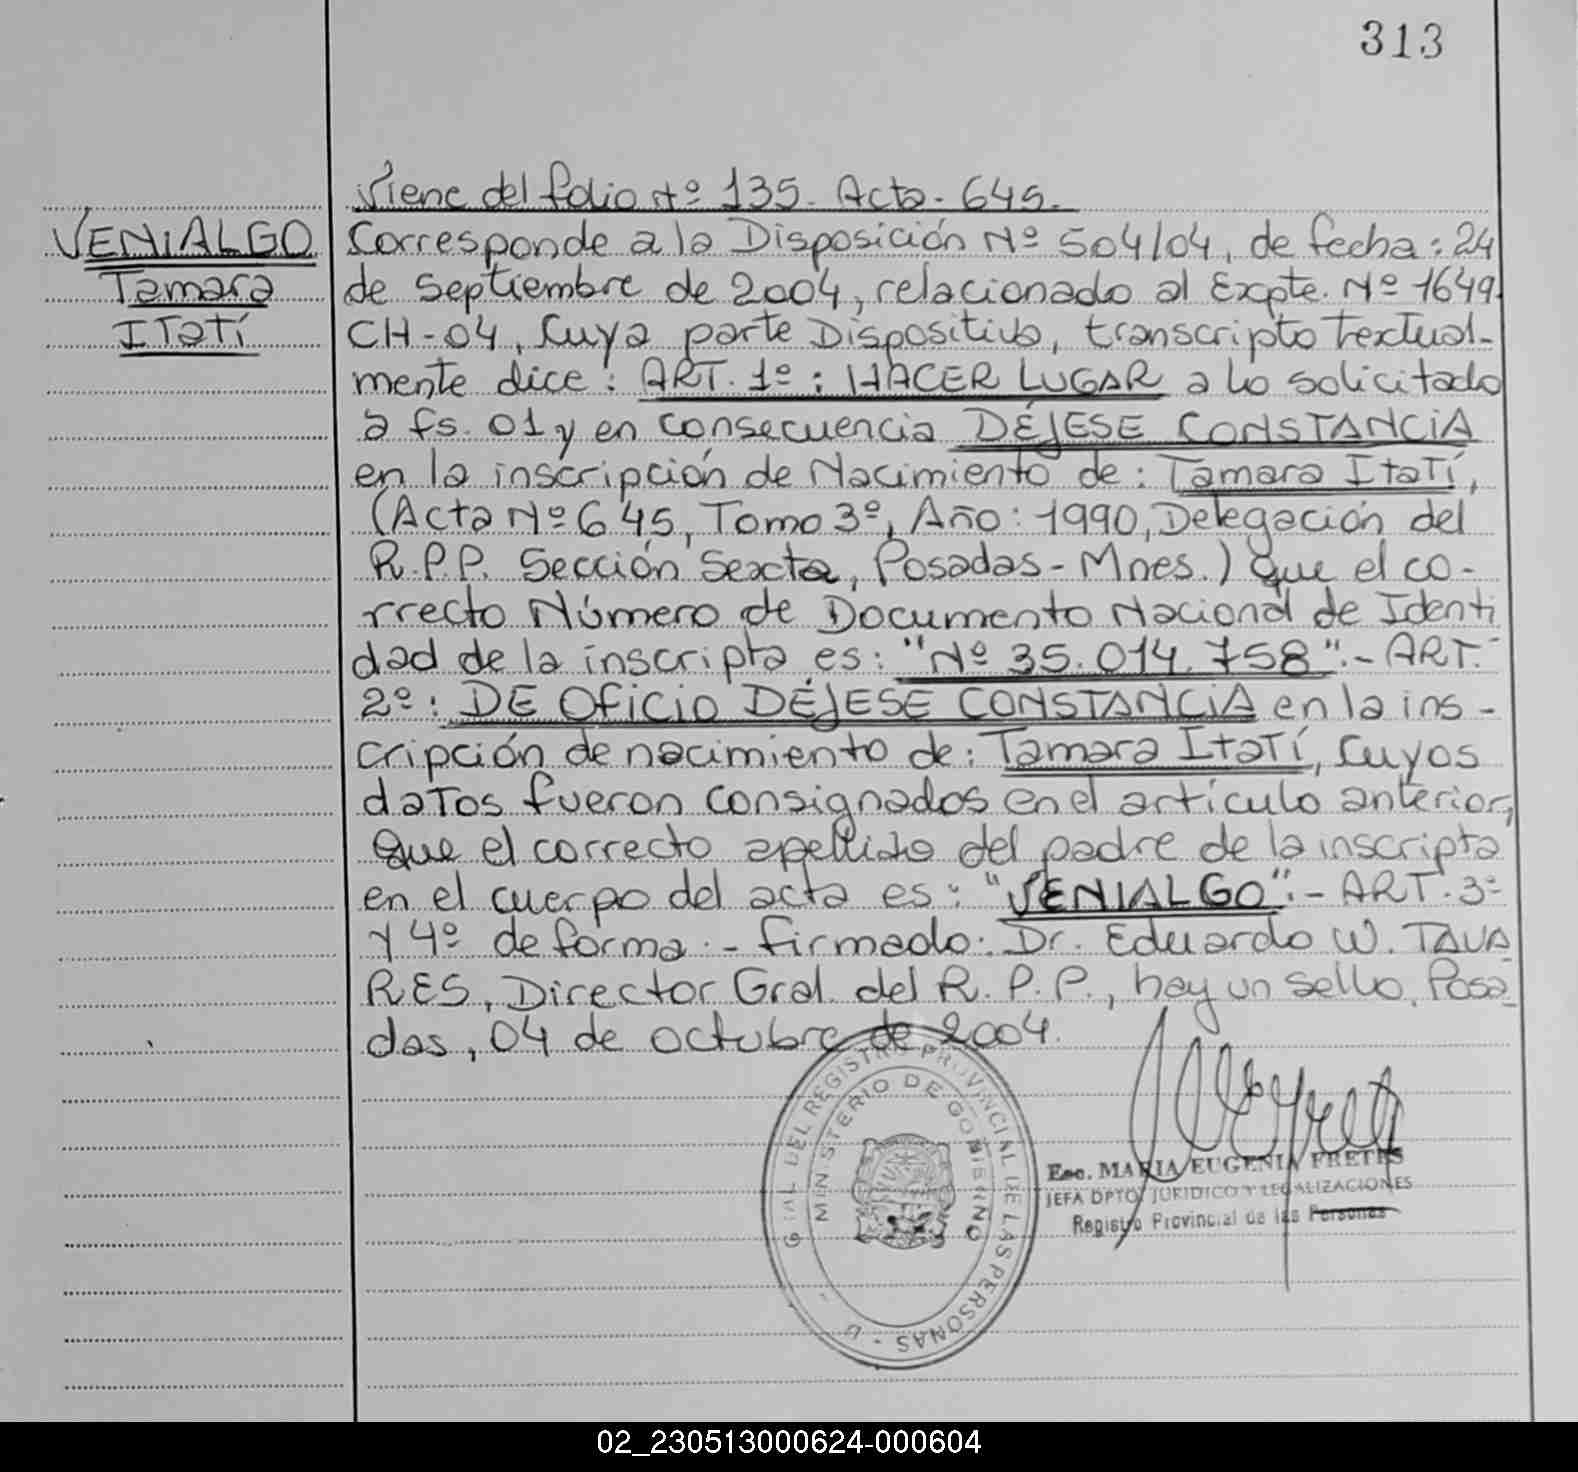 313
Viene del folio Nº 135. Acta. 645.
VENIALGO
Tamara
Itatí
Corresponde a la Disposición Nº 504/04, de fecha: 24
de septiembre de 2004, relacionado al Expte. Nº 1649.
CH-04, cuya parte Dispositiva, transcripto textual-
mente dice: ART. 1º: HACER LUGAR a lo solicitado
a fs. 01 y en consecuencia DÉJESE CONSTANCIA
en la inscripción de Nacimiento de: Tamara Itatí,
(Acta Nº 645, Tomo 3º, Año: 1990, Delegación del
R.P.P. Sección Sexta, Posadas-Mnes.) Que el co-
rrecto Número de Documento Nacional de Identi
dad de la inscripta es: "Nº 35.014.758".- ART.
2º: DE OFICIO DÉJESE CONSTANCIA en la ins-
cripción de nacimiento de: Tamara Itatí, cuyos
datos fueron consignados en el artículo anterior,
Que el correcto apellido del padre de la inscripta
en el cuerpo del acta es: "VENIALGO".- ART. 3º
y 4º de forma.- firmado: Dr. Eduardo W. TAVA
RES, Director Gral. del R.P.P., hay un sello. Posa
das, 04 de octubre de 2004.
GRAL DEL REGISTRO PROVINCIAL DE LAS PERSONAS
MINISTERIO DE GOBIERNO
Esc. MARIA EUGENIA FRETES
JEFA DPTO. JURIDICO Y LEGALIZACIONES
Registro Provincial de las Personas
02_230513000624-000604